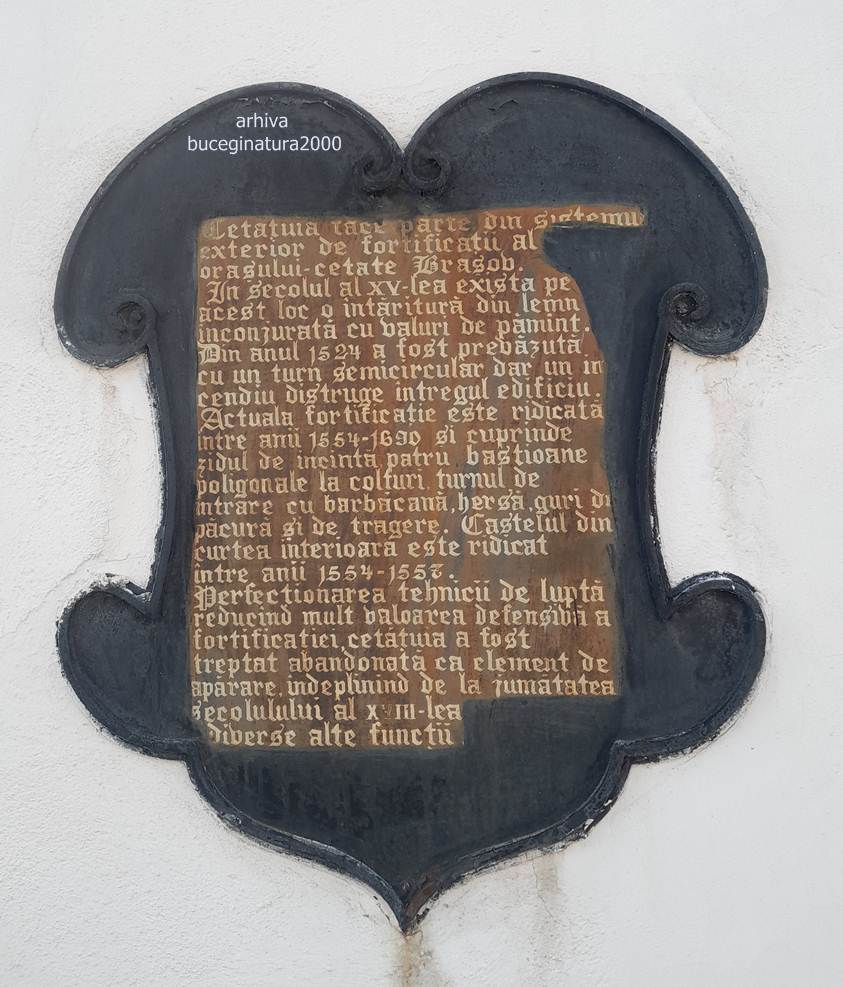 arhiva
buceginatura2000
Cetatuia face parte din sistemul
exterior de fortificatii al
orasului-cetate Brasov.
In secolul al XV-lea exista pe
acest loc o intăritură din lemn
inconjurată cu valuri de pămint.
Din anul 1524 a fost prevăzută
cu un turn semicircular dar un in
cendiu distruge intregul edificiu.
Actuala fortificatie este ridicată
intre anii 1554-1690 si cuprinde
zidul de incintă patru bastioane
poligonale la colturi turnul de
intrare cu barbacană, hersă, guri de
păcură si de tragere. Castelul din
curtea interioară este ridicat
intre anii 1554-1557.
Perfectionarea tehnicii de luptă
reducind mult valoarea defensivă a
fortificatiei cetătuia a fost
treptat abandonată ca element de
apărare, indeplinind de la jumătatea
secolulului al XVIII-lea
diverse alte functii